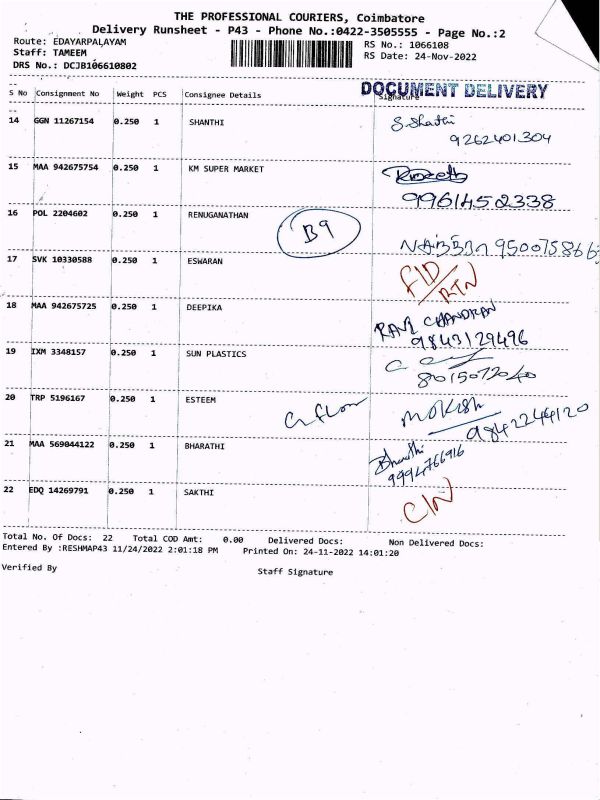 THE PROFESSIONAL COURIERS, Coimbatore
Delivery Runsheet - P43 - Phone No.:0422-3505555 - Page No.:2
Route: EDAYARPALAYAM
Staff: TAMEEM
DRS No.: DCJB106610802
RS No.: 1066108
RS Date: 24-Nov-2022
DOCUMENT DELIVERY
S No Consignment No Weight PCS Consignee Details Signature
14 GGN 11267154 0.250 1 SHANTHI S. Shathi
9262401304
15 MAA 942675754 0.250 1 KM SUPER MARKET
9961452338
16 POL 2204602 0.250 1 RENUGANATHAN B9
950075866
17 SVK 10330588 0.250 1 ESWARAN FID/RTN
18 MAA 942675725 0.250 1 DEEPIKA RAVI CHANDRAN
9843129496
19 IXM 3348157 0.250 1 SUN PLASTICS
8015072040
20 TRP 5196167 0.250 1 ESTEEM G flow Mokish
9842244120
21 MAA 569044122 0.250 1 BHARATHI Bharathi
9994766916
22 EDQ 14269791 0.250 1 SAKTHI
Total No. Of Docs: 22 Total COD Amt: 0.00 Delivered Docs: Non Delivered Docs:
Entered By :RESHMAP43 11/24/2022 2:01:18 PM Printed On: 24-11-2022 14:01:20
Verified By Staff Signature